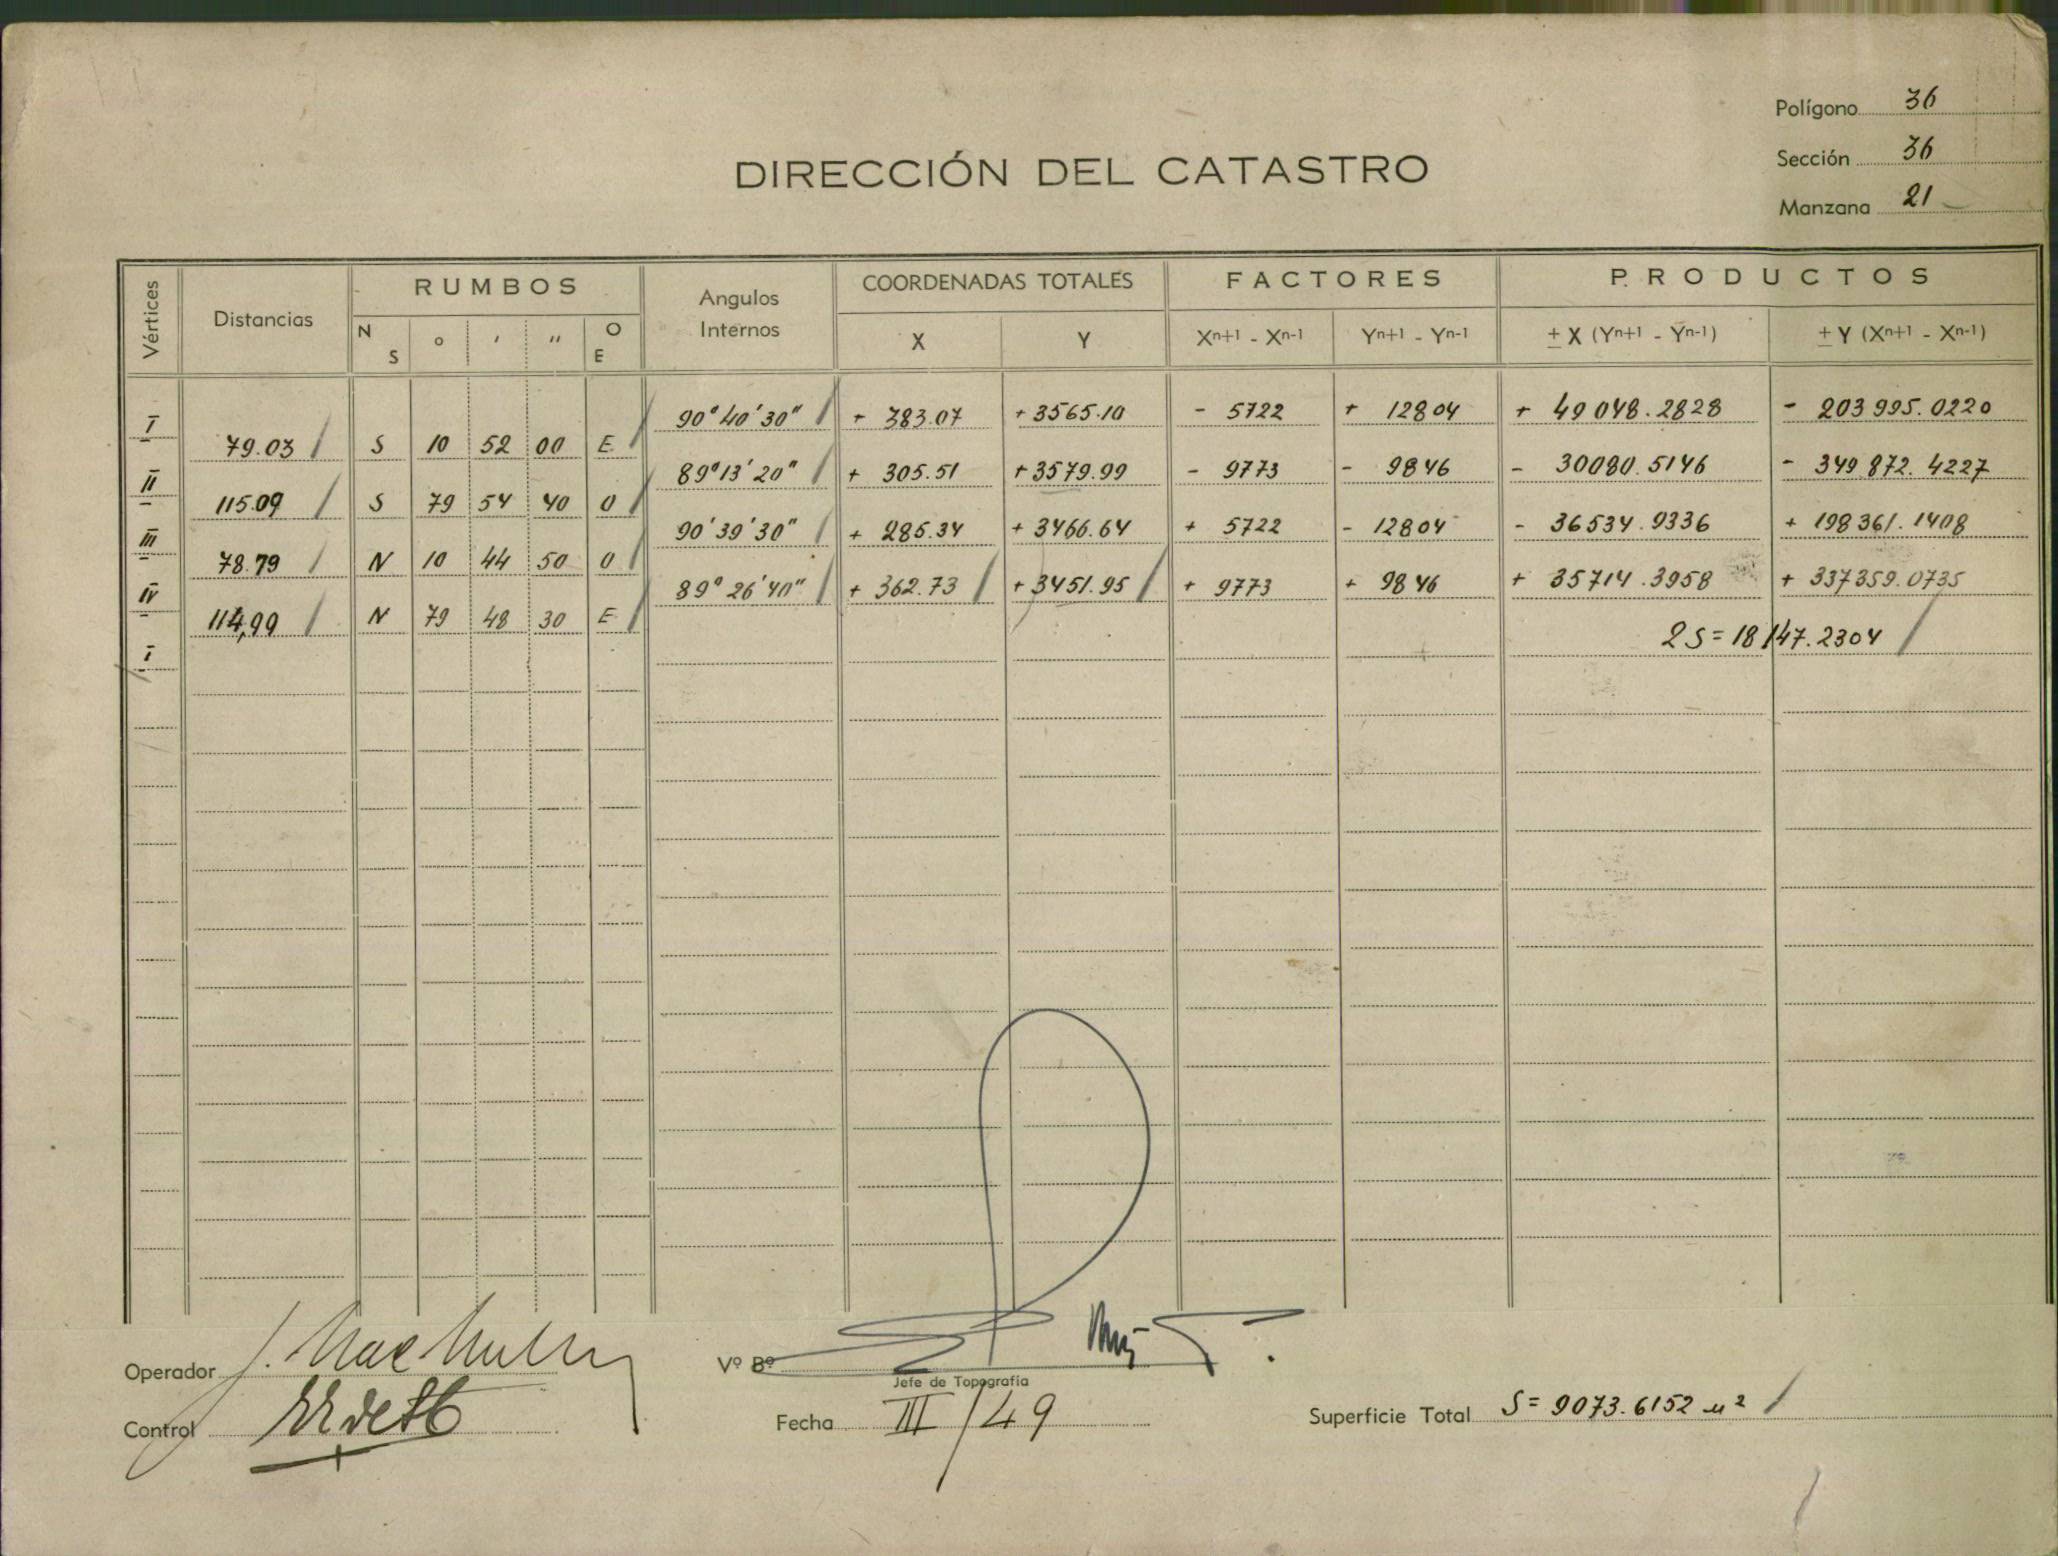 Polígono 36
DIRECCIÓN DEL CATASTRO
Sección 36
Manzana 21
Vértices Distancias RUMBOS Angulos Internos COORDENADAS TOTALES FACTORES PRODUCTOS
N S ° ' '' O E X Y Xn+1 - Xn-1 Yn+1 - Yn-1 ± X (Yn+1 - Yn-1) ± Y (Xn+1 - Xn-1)
I 90° 40' 30" + 383.07 + 3565.10 - 5722 + 12804 + 49048.2828 - 203995.0220
79.03 S 10 52 00 E
II 89° 13' 20" + 305.51 + 3579.99 - 9773 - 9846 - 30080.5146 - 349872.4227
115.09 S 79 54 40 O
III 90' 39' 30" + 285.34 + 3466.64 + 5722 - 12804 - 36534.9336 + 198361.1408
78.79 N 10 44 50 O
IV 89° 26' 40" + 362.73 + 3451.95 + 9773 + 9846 + 35714.3958 + 337359.0735
114,99 N 79 48 30 E
I 2S = 18147.2304
Operador
Vº Bº
Jefe de Topografía
Control
Fecha III/49
Superficie Total S = 9073.6152 m²